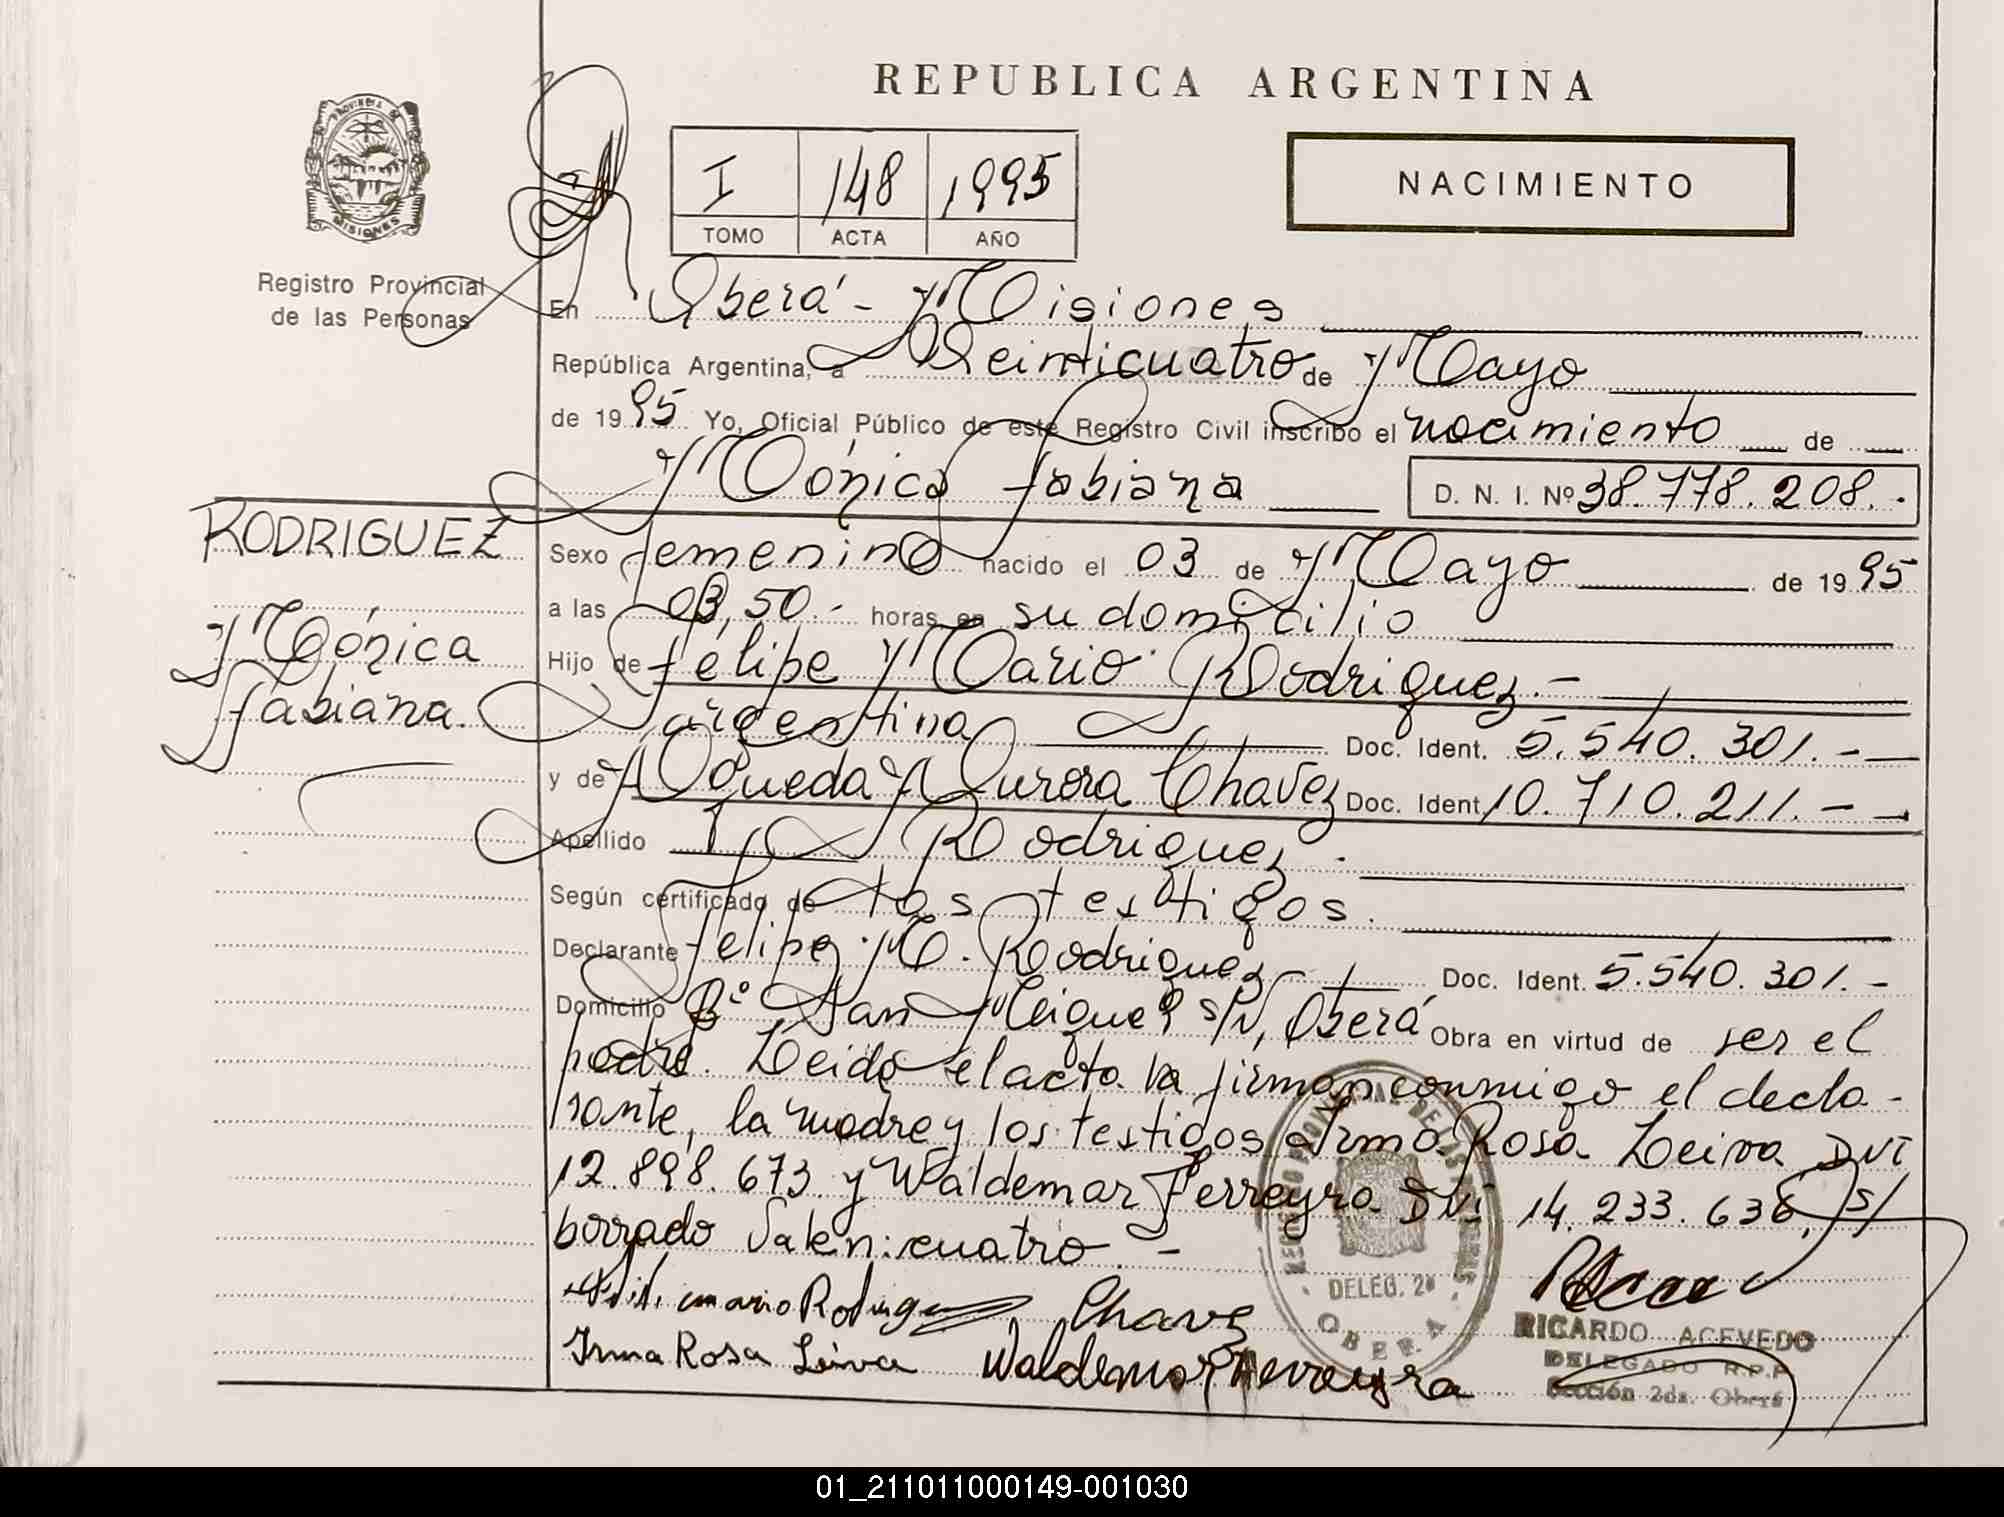 REPUBLICA ARGENTINA
PROVINCIA DE
MISIONES
Registro Provincial
de las Personas
I 148 1995
TOMO ACTA AÑO
NACIMIENTO
En Oberá - Misiones
República Argentina, a Veinticuatro de Mayo
de 1995 Yo, Oficial Público de este Registro Civil inscribo el nacimiento de
Mónica Fabiana D. N. I. Nº 38.778.208.-
RODRIGUEZ
Mónica
Fabiana.
Sexo femenino nacido el 03 de Mayo de 1995
a las 03,50.- horas en su domicilio
Hijo de Felipe Mario Rodriguez.-
argentina Doc. Ident. 5.540.301.-
y de Agueda Aurora Chavez Doc. Ident. 10.710.211.-
Apellido Rodriguez.
Según certificado de los testigos.
Declarante Felipe M. Rodriguez Doc. Ident. 5.540.301.-
Domicilio Bº San Miguel s/N, Oberá Obra en virtud de ser el
padre. Leida el acta la firman conmigo el decla-
rante, la madre y los testigos Irma Rosa Leiva DNI
12.898.673 y Waldemar Ferreyra DNI 14.233.636, s/
borrado Vale: cuatro.-
mario Rodrigu Chavez
Irma Rosa Leiva Waldemar Ferreyra
REGISTRO PROVINCIAL DE LAS PERSONAS
DELEG. 2ª
OBERA
RICARDO ACEVEDO
DELEGADO R.P.P.
Sección 2da. Oberá
01_211011000149-001030